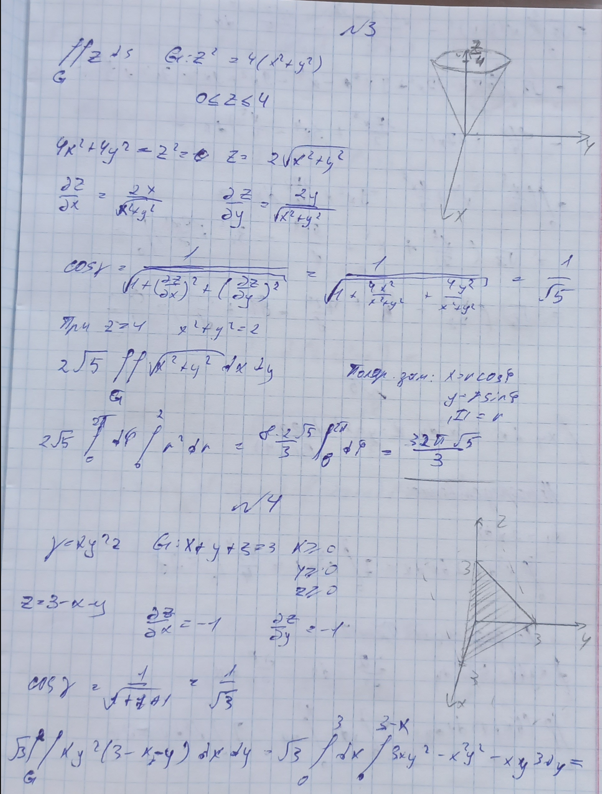 №3
∬ z ds   G: z² = 4(x²+y²)
G
0≤z≤4
z
4
y
x
4x²+4y² - z² = 0   z = 2√(x²+y²)
∂z/∂x = 2x/√(x²+y²)   ∂z/∂y = 2y/√(x²+y²)
cosγ = 1/√(1+(∂z/∂x)²+(∂z/∂y)²) = 1/√(1+4x²/(x²+y²)+4y²/(x²+y²)) = 1/√5
При z=4   x²+y²=2
2√5 ∬ √(x²+y²) dx dy   Поляр. зам: x=r cosφ
G   y=r sinφ
|I| = r
2√5 ∫₀^2π dφ ∫₀² r² dr = 8·2√5/3 ∫₀^2π dφ = 32π√5/3
№4
γ=xy²z   G: x+y+z=3   x≥0
y≥0
z≥0
z
3
3
y
3
x
z=3-x-y   ∂z/∂x = -1   ∂z/∂y = -1
cosγ = 1/√(1+1+1) = 1/√3
√3 ∬ xy²(3-x-y) dx dy = √3 ∫₀³ dx ∫₀^3-x 3xy² - x²y² - xy³ dy =
G